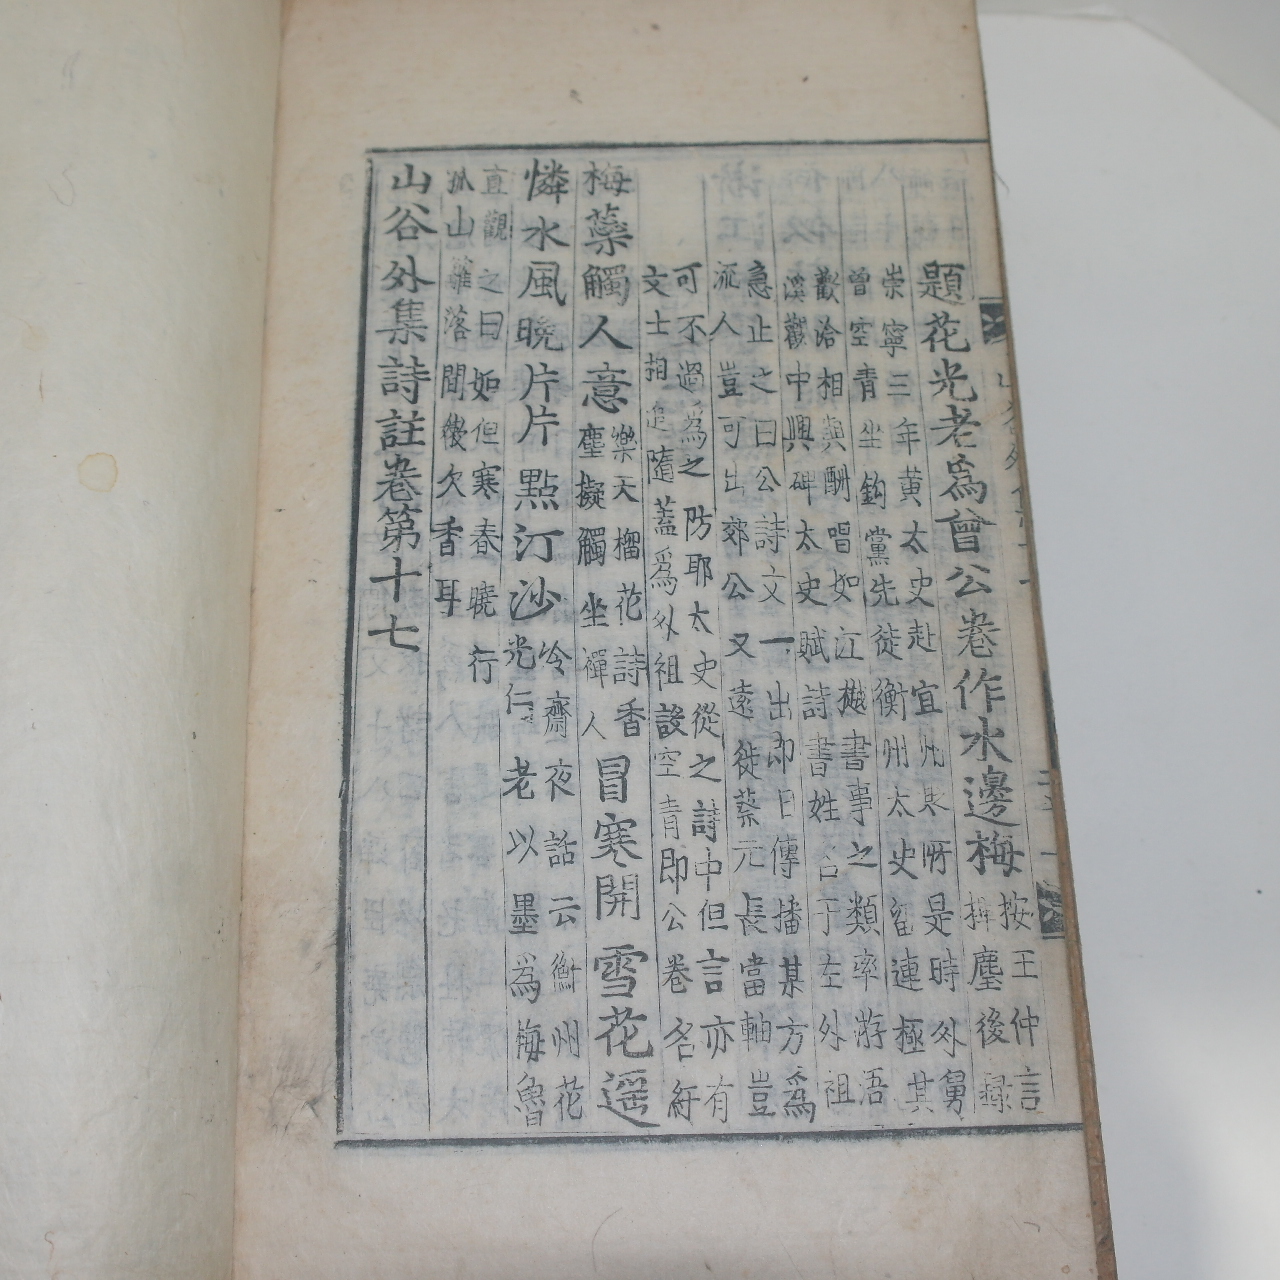 題花光老爲曾公卷作水邊梅按王仲言
揮塵後錄
崇寧三年黃太史赴宜州是時外舅
曾空青坐鉤黨先徙衡州太史留連極其
歡洽相與酬唱如江樾書事之類率游浯
溪觀中興碑太史賦詩書姓名于左外祖
急止之曰公詩文一出即日傳播某方爲
流人豈可出郊公又遠徙蔡元長當軸豈
可不過爲之防耶太史從之詩中但言亦有
文士相追隨蓋爲外祖設空青即公卷名紆
梅蘂觸人意樂天榴花詩香
塵擬觸坐禪人
冒寒開雪花遥
憐水風晚片片點汀沙冷齋夜話云衡州花
光仁老以墨爲梅魯
直觀之曰如但寒春曉行
孤山籬落間後欠香耳
山谷外集詩註卷第十七